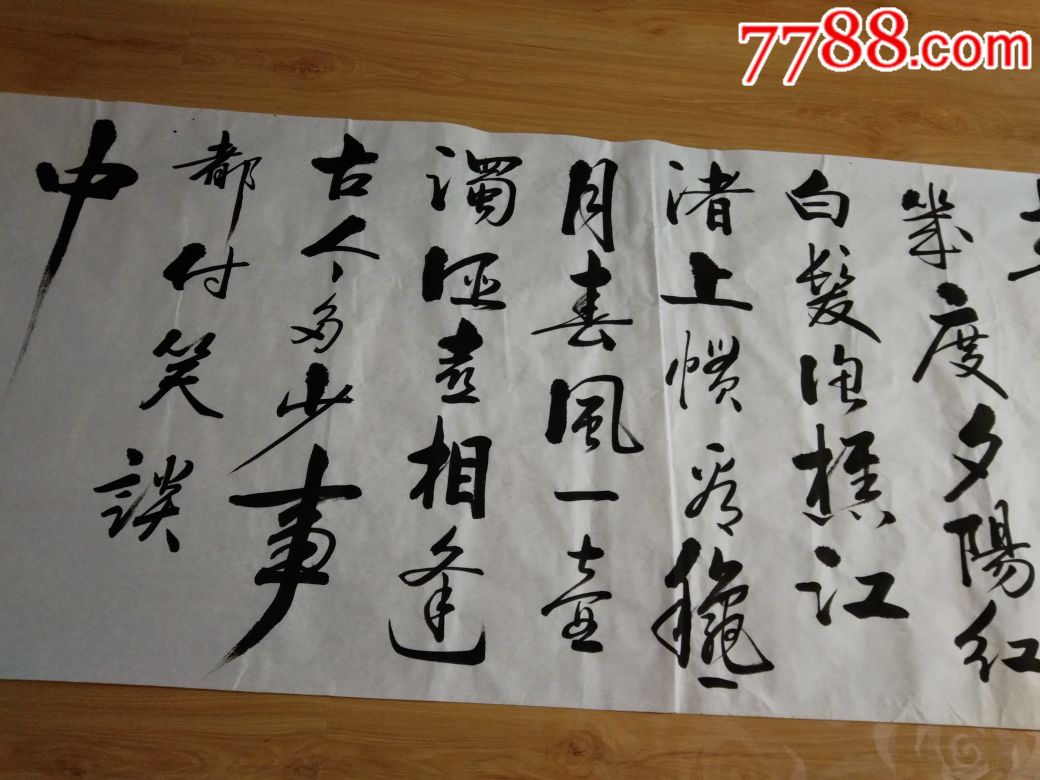 7788.com
幾度夕陽紅
白髮漁樵江
渚上慣看龝
月春風一壺
濁酒喜相逢
古今多少事
都付笑談
中